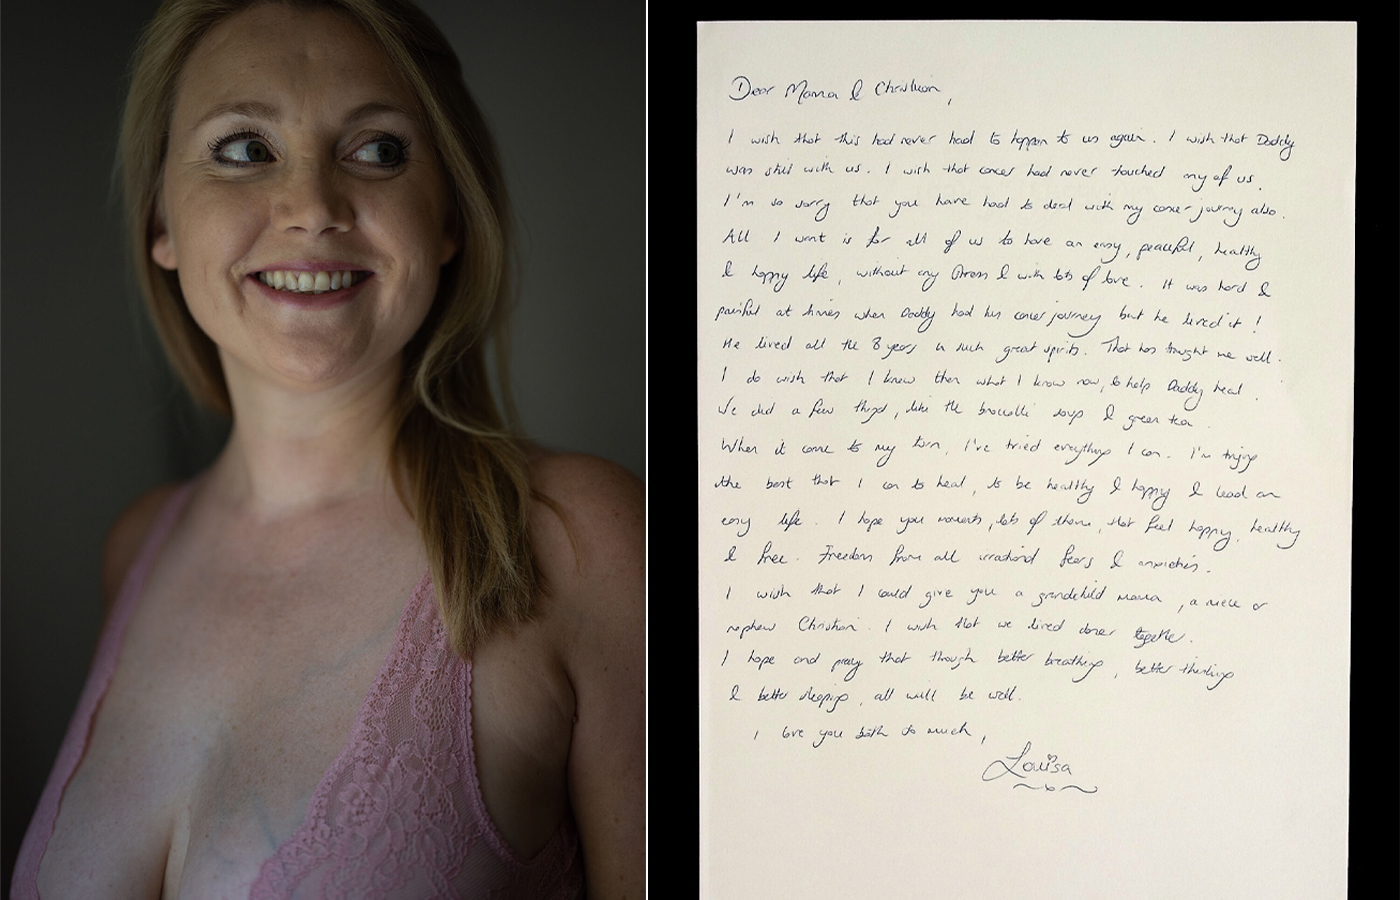 Dear Mama & Christian,
I wish that this had never had to happen to us again. I wish that Daddy
was still with us. I wish that cancer had never touched any of us.
I'm so sorry that you have had to deal with my cancer journey also.
All I want is for all of us to have an easy, peaceful, healthy
& happy life, without any stress & with lots of love. It was hard &
painful at times when Daddy had his cancer journey but he lived it!
He lived all the 8 years in such great spirits. That has taught me well.
I do wish that I knew then what I know now, to help Daddy heal.
We did a few things, like the broccolli soup & green tea.
When it came to my turn, I've tried everything I can. I'm trying
the best that I can to heal, to be healthy & happy & lead an
easy life. I hope you moments, lots of them, that feel happy, healthy
& free. Freedom from all irrational fears & anxieties.
I wish that I could give you a grandchild mama, a niece or
nephew Christian. I wish that we lived closer together.
I hope and pray that through better breathing, better thinking
& better sleeping, all will be well.
I love you both so much,
Louisa